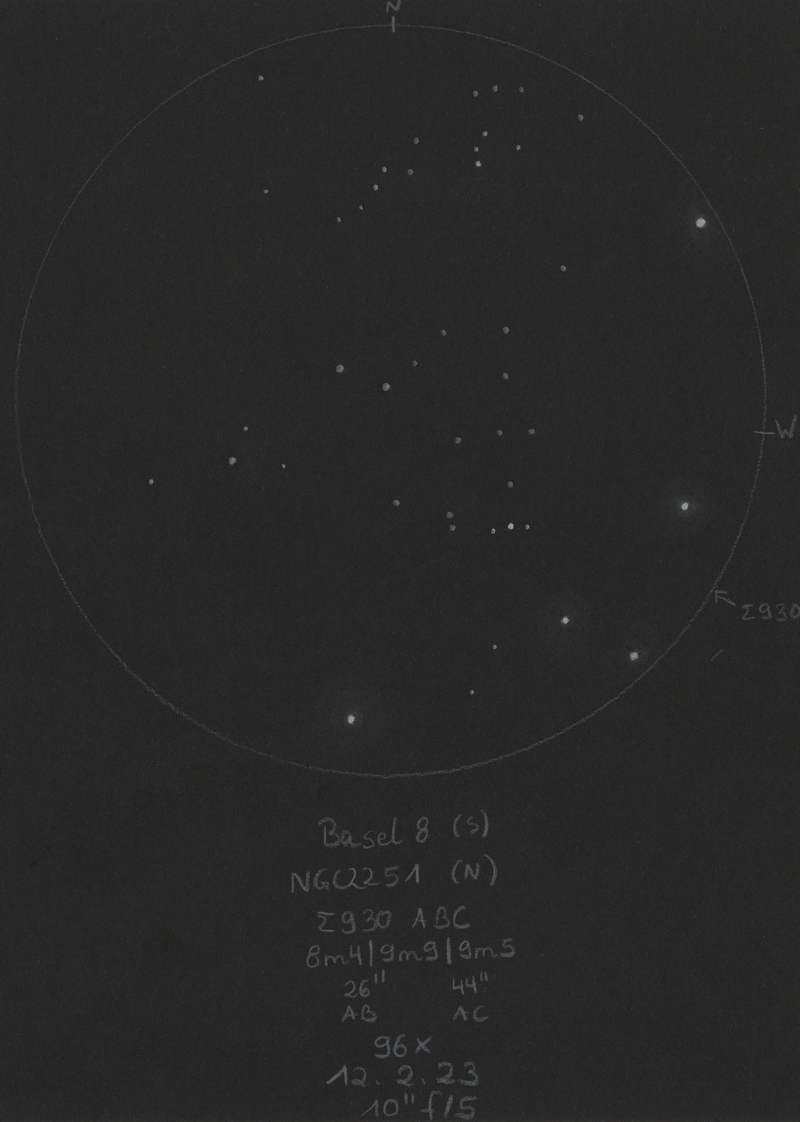 N
W
Σ930
Basel 8 (S)
NGC2251 (N)
Σ930 ABC
8m4|9m9|9m5
26" 44"
AB AC
96x
12.2.23
10" f/5